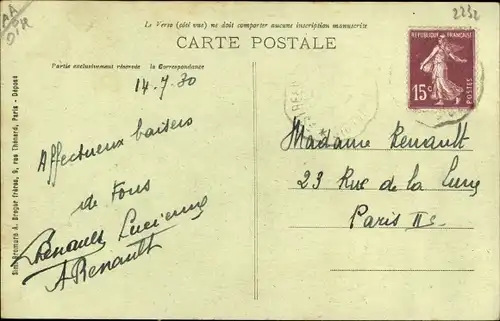 AA
DIR
2232
Le Verso (côté vue) ne doit comporter aucune inscription manuscrite
CARTE POSTALE
Partie exclusivement réservée à la Correspondance
14.7.30
Affectueux baisers
de Tous
Renault Lucienne
A Renault
RÉPUBLIQUE FRANÇAISE
15c
POSTES
Madame Renault
23 Rue de la Lune
Paris IIe
Simi-Bromure A. Breger frères, 9, rue Thénard, Paris - Déposé